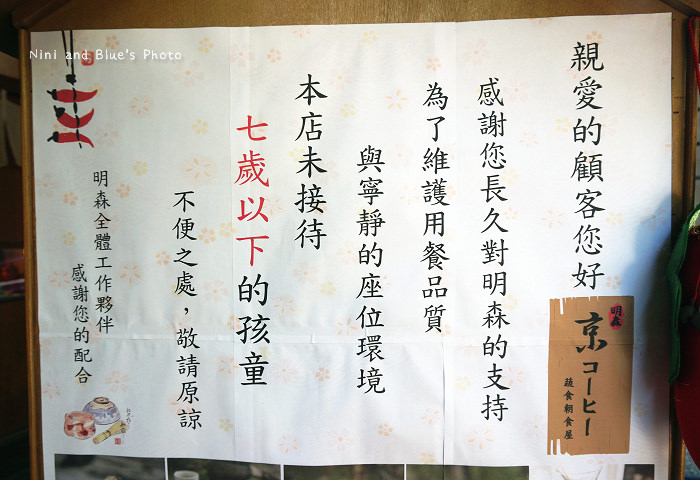 Nini and Blue's Photo
親愛的顧客您好
感謝您長久對明森的支持
為了維護用餐品質
與寧靜的座位環境
本店未接待
七歲以下的孩童
不便之處，敬請原諒
明森全體工作夥伴
感謝您的配合
明森
京コーヒー
蔬食朝食屋